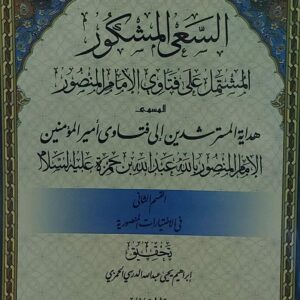 السعي المشكور
المشتمل على فتاوى الإمام المنصور
المسمى
هداية المسترشدين إلى فتاوى أمير المؤمنين
الإمام المنصور بالله عبدالله بن حمزة عليه السلام
القسم الثاني
في الاختيارات المنصورية
تحقيق
إبراهيم يحيى عبدالله الدرسي الحمزي